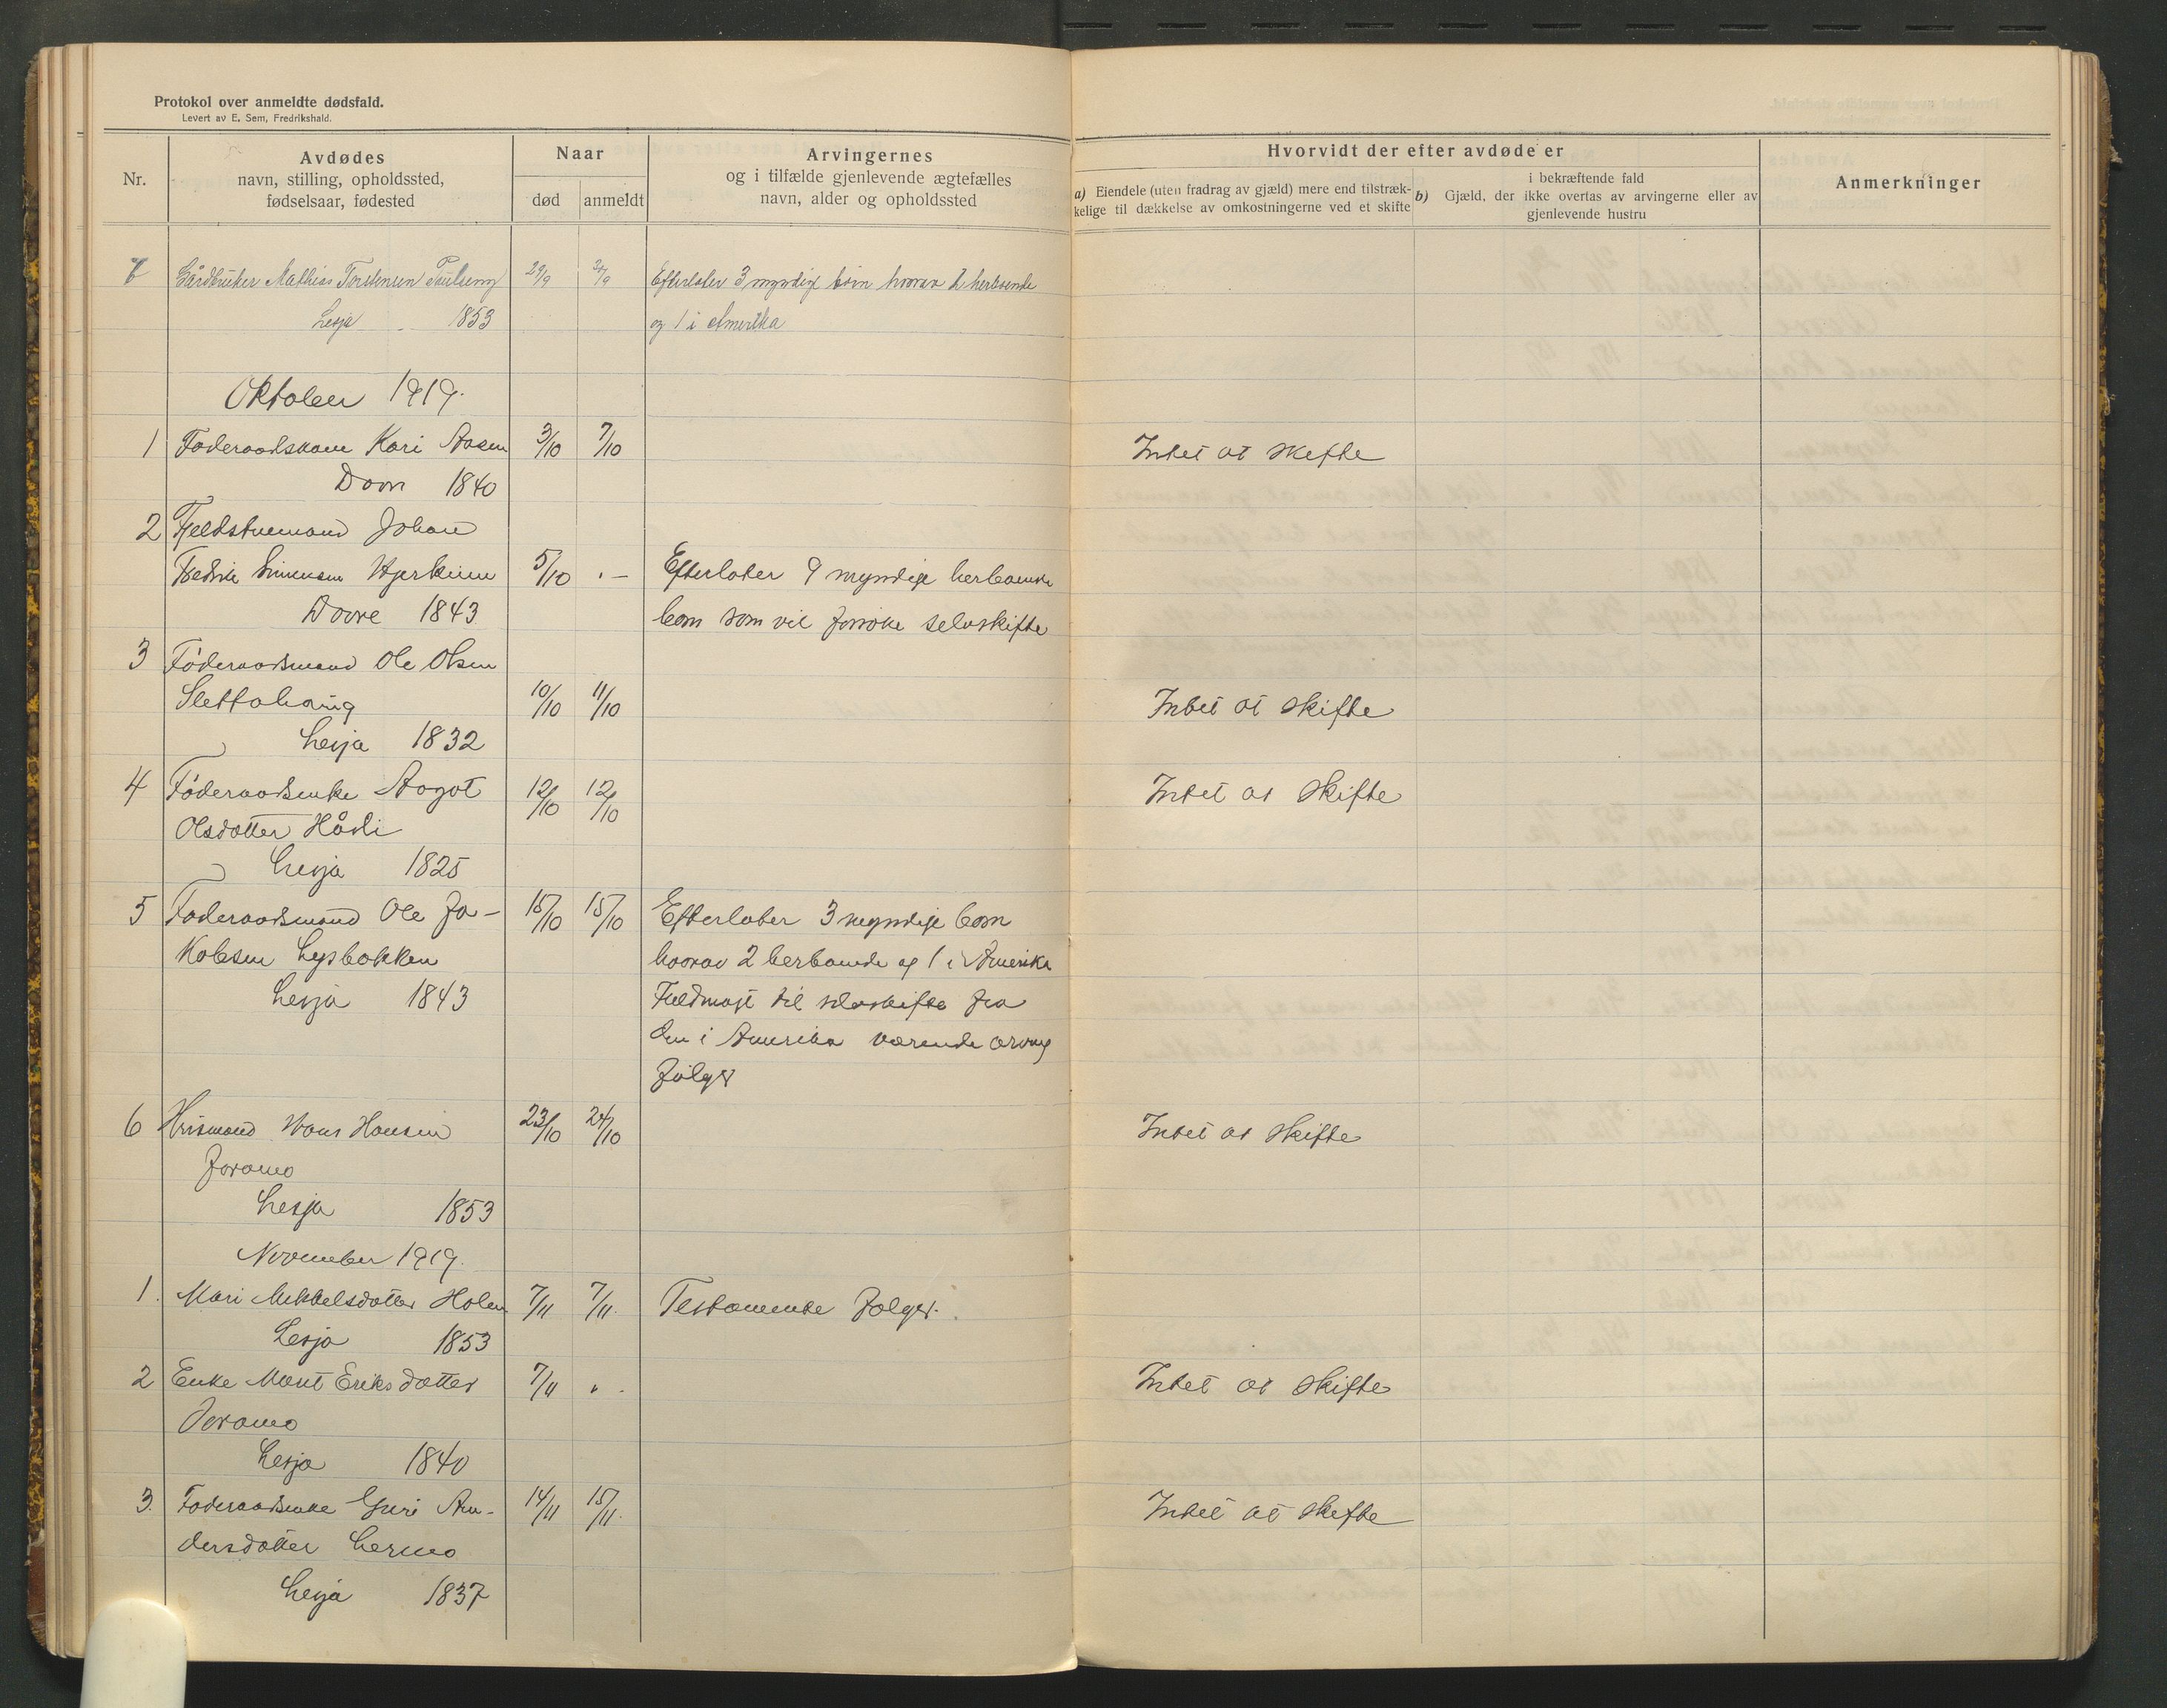 Protokol over anmeldte dødsfald.
Levert av E. Sem, Fredrikshald.
Nr.
Avdødes
navn, stilling, opholdssted,
fødselsaar, fødested
Naar
død
anmeldt
Arvingernes
og i tilfælde gjenlevende ægtefælles
navn, alder og opholdssted
Hvorvidt der efter avdøde er
a) Eiendele (uten fradrag av gjæld) mere end tilstræk-
kelige til dækkelse av omkostningerne ved et skifte
i bekræftende fald
b) Gjæld, der ikke overtas av arvingerne eller av
gjenlevende hustru
Anmerkninger
Gårdbruker Mathias Torstensen 29/9 Efterlater 3 myndige børn hvorav 2 herboende
Lesja 1853 og 1 i Amerika
Oktober 1919.
1 Føderaadskone Kari Aasen 3/10 7/10 Intet at skifte
Dovre 1840
2 Fjeldstuemand Johan
Fredrik Simensen Hjerkinn 5/10 " – Efterlater 9 myndige herboende
Dovre 1843 børn som vil foretage selvskifte
3 Føderaadsmand Ole Olsen
10/10 11/10 Intet at skifte
Lesja 1832
4 Føderaadsenke Aagot 12/10 12/10 Intet at skifte
Olsdatter Hådi
Lesja 1825
5 Føderaadsmand Ole Ja- 15/10 15/10 Efterlater 3 myndige børn
kobsen Lysbakken hvorav 2 herboende og 1 i Amerika
Lesja 1843 Fuldmagt til selvskifte fra
den i Amerika værende arving
følger
6 Husmand Hans Hansen 23/10 24/10 Intet at skifte
Joramo
Lesja 1853
November 1919.
1. Mari Mikkelsdatter Holen 7/11 7/11. Testamente følger.
Lesja 1853
2 Enke Marit Eriksdatter 7/11 " - Intet at skifte
Joramo
Lesja 1840
3. Føderaadsenke Guri An- 14/11 15/11. Intet at skifte
dersdatter Lermo
Lesja 1837